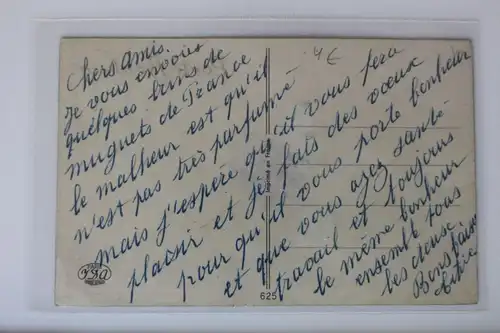 chers amis.
je vous envoies
quelques brins de
muguets de France
le malheur est qu'il
n'est pas très parfumé
mais j'espère qu'il vous fera
plaisir et je fais des vœux
pour qu'il vous porte bonheur
et que vous ayez santé
travail et toujours
le même bonheur
ensemble tous
les deux.
Bons baisers
4€
Imprimé en France
625